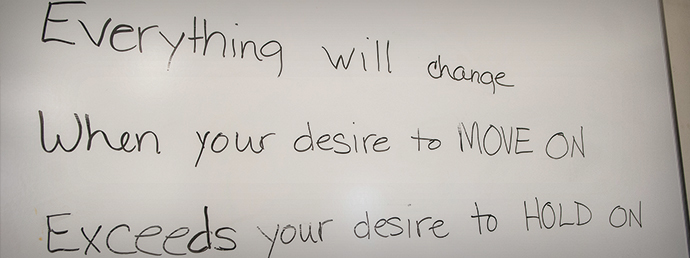 Everything will change
When your desire to MOVE ON
Exceeds your desire to HOLD ON